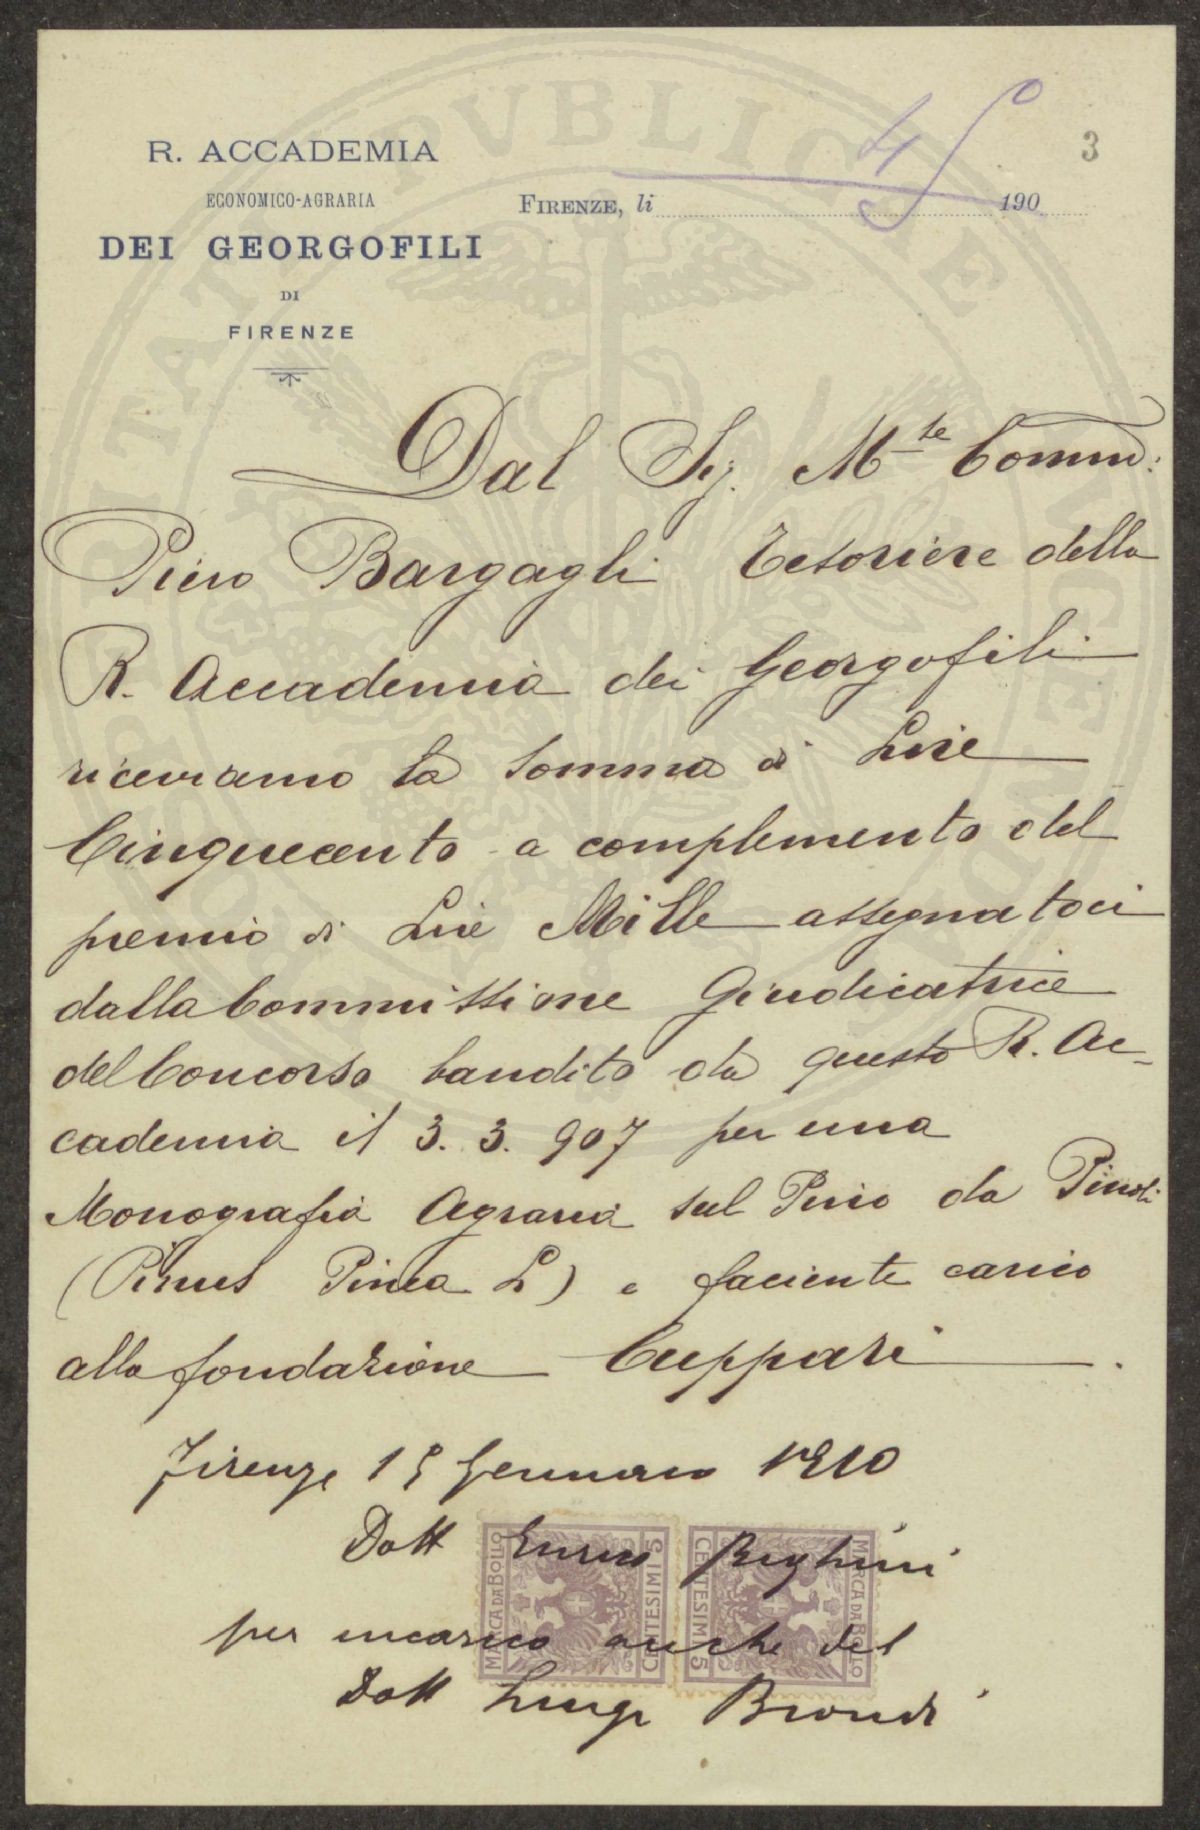 PROSPERITATI PUBLICAE AUGENDAE
45
3
R. ACCADEMIA
ECONOMICO-AGRARIA
DEI GEORGOFILI
DI
FIRENZE
FIRENZE, li 190
Dal Sig. M.te Comm:
Piero Bargagli Tesoriere della
R. Accademia dei Georgofili
riceviamo la somma di Lire
Cinquecento a complemento del
premio di Lire Mille assegnatoci
dalla Commissione Giudicatrice
del Concorso bandito da questa R. Ac-
cademia il 3. 3. 907 per una
Monografia Agraria sul Pino da Pinoli
(Pinus Pinea L) e faciente carico
alla fondazione Cuppari.
Firenze 15 Gennaio 1910
Dott Enrico Beghini
per incarico anche del
Dott Luigi Biondi
MARCA DA BOLLO
CENTESIMI 5
CENTESIMI 5
MARCA DA BOLLO